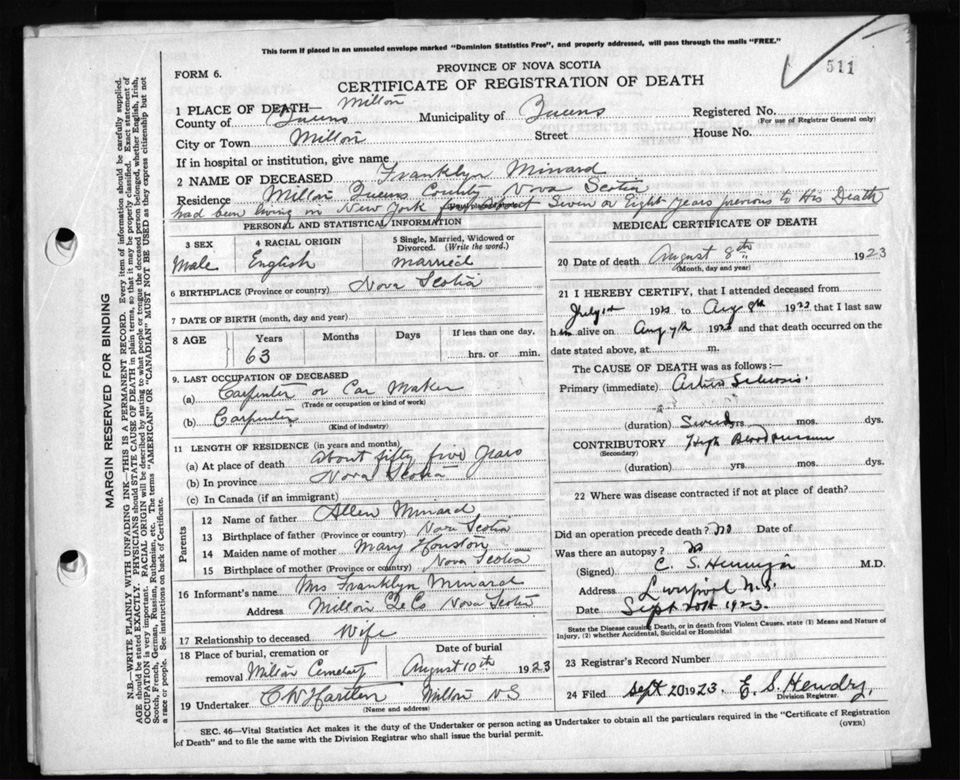 This form if placed in an unsealed envelope marked "Dominion Statistics Free", and properly addressed, will pass through the mails "FREE."
511
FORM 6.
PROVINCE OF NOVA SCOTIA
CERTIFICATE OF REGISTRATION OF DEATH
1 PLACE OF DEATH— Milton
County of Queens Municipality of Queens Registered No.
(For use of Registrar General only)
City or Town Milton Street House No.
If in hospital or institution, give name
2 NAME OF DECEASED Franklyn Minard
Residence Milton Queens County Nova Scotia
had been living in New York Seven or Eight years previous to His Death
PERSONAL AND STATISTICAL INFORMATION
3 SEX 4 RACIAL ORIGIN 5 Single, Married, Widowed or Divorced. (Write the word.)
Male English married
6 BIRTHPLACE (Province or country) Nova Scotia
7 DATE OF BIRTH (month, day and year)
8 AGE Years Months Days If less than one day,
63 hrs. or min.
9. LAST OCCUPATION OF DECEASED
(a) Carpenter or Car Maker
(Trade or occupation or kind of work)
(b) Carpenter
(Kind of industry)
11 LENGTH OF RESIDENCE (in years and months)
(a) At place of death About fifty five years
(b) In province Nova Scotia
(c) In Canada (if an immigrant)
Parents
12 Name of father Allen Minard
13 Birthplace of father (Province or country) Nova Scotia
14 Maiden name of mother Mary Houston
15 Birthplace of mother (Province or country) Nova Scotia
16 Informant's name Mrs Franklyn Minard
Address Milton Q Co Nova Scotia
17 Relationship to deceased Wife
18 Place of burial, cremation or removal Milton Cemetery
Date of burial August 10th 1923
19 Undertaker Milton N S
(Name and address)
MEDICAL CERTIFICATE OF DEATH
20 Date of death August 8th 1923
(Month, day and year)
21 I HEREBY CERTIFY, that I attended deceased from
July 1st to Aug 8th that I last saw
him alive on Aug 7th and that death occurred on the
date stated above, at m.
The CAUSE OF DEATH was as follows:—
Primary (immediate) Arterio Sclerosis
(duration) Several yrs. mos. dys.
CONTRIBUTORY High Blood pressure
(Secondary)
(duration) yrs. mos. dys.
22 Where was disease contracted if not at place of death?
Did an operation precede death? no Date of
Was there an autopsy? no
(Signed) C. S. Hennigar M.D.
Address Liverpool N.S.
Date Sept 20th 1923.
State the Disease causing Death, or in death from Violent Causes. state (1) Means and Nature of
Injury, (2) whether Accidental, Suicidal or Homicidal
23 Registrar's Record Number
24 Filed Sept 20 1923, E. S. Hendry,
Division Registrar.
SEC. 46—Vital Statistics Act makes it the duty of the Undertaker or person acting as Undertaker to obtain all the particulars required in the "Certificate of Registration
of Death" and to file the same with the Division Registrar who shall issue the burial permit.
(OVER)
MARGIN RESERVED FOR BINDING
N.B.—WRITE PLAINLY WITH UNFADING INK—THIS IS A PERMANENT RECORD. Every item of information should be carefully supplied.
AGE should be stated EXACTLY. PHYSICIANS should STATE CAUSE OF DEATH in plain terms, so that it may be properly classified. Exact statement of
OCCUPATION is very important. RACIAL ORIGIN will be described by stating to what people or tongue the deceased person belonged, whether English, Irish,
Scotch, French, German, Russian, Ruthenian, etc. The terms "AMERICAN" OR "CANADIAN" MUST NOT BE USED as they express citizenship but not
a race or people. See instructions on back of Certificate.